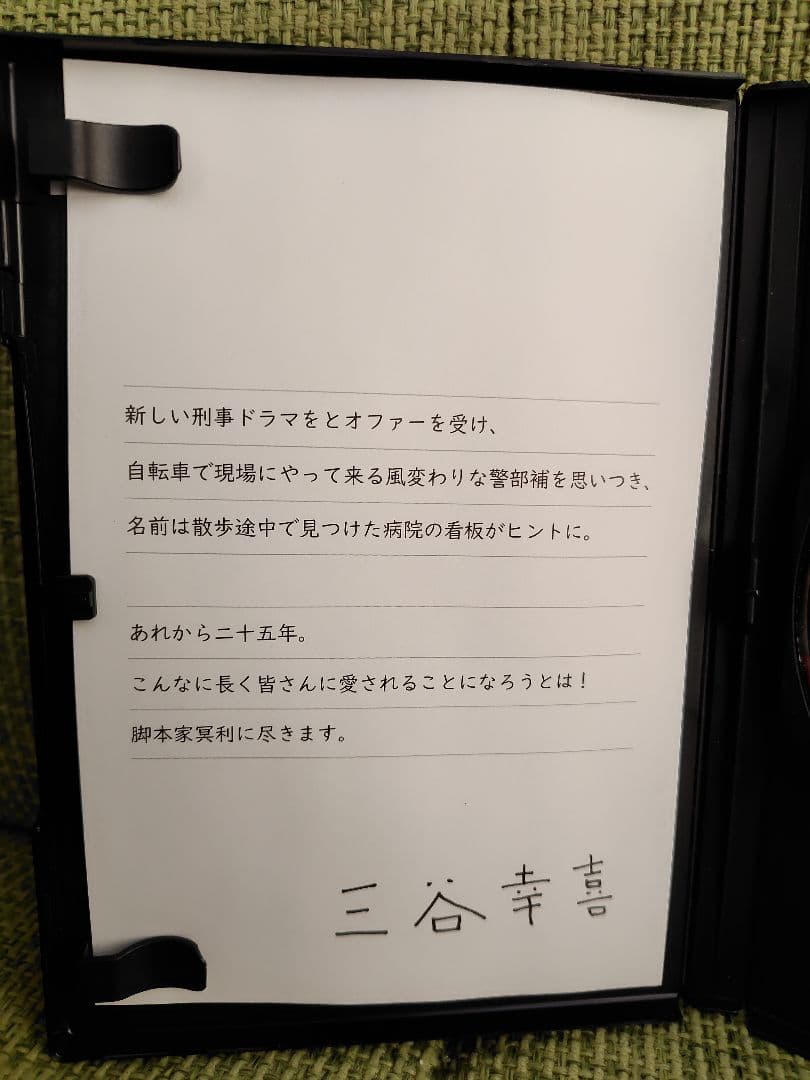 新しい刑事ドラマをとオファーを受け、
自転車で現場にやって来る風変わりな警部補を思いつき、
名前は散歩途中で見つけた病院の看板がヒントに。
あれから二十五年。
こんなに長く皆さんに愛されることになろうとは！
脚本家冥利に尽きます。
三谷幸喜